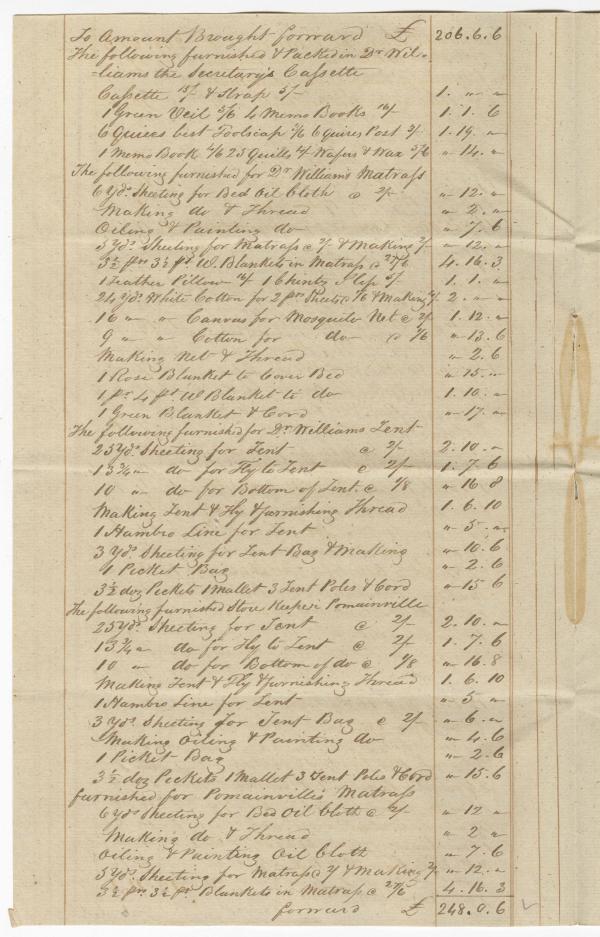 To Amount Brought forward £ 206.6.6
The following furnished & Packed in Dr Wil=
=liams the Secretary's Cassette
Cassette 15/- & Strap 5/- 1. " "
1 Green Veil 5/6 4 Memo Books 16/- 1. 1. 6
6 Quires best Foolscap 6 Quires Post 1. 19. "
1 Memo Book 2/6 25 Quills Wafers & Wax " 14. "
The following furnished for Dr Williams Matrass
6 Yds. Sheeting for Bed Oil Cloth @ 2/- " 12. "
Making do & Thread " 2. "
Oiling & Painting do " 7. 6
5 Yds. Sheeting for Matrass @ 2/- & Making 2/- " 12. "
3½ prs 3½ pt W. Blankets in Matrass @ 27/6 4. 16. 3
1 Leather Pillow 16/- 1 Chintz Slip 5/- 1. 1. "
24 Yds. White Cotton for 2 prs Sheets @ 1/6 & Making 2. " "
16 " " Canvas for Mosquito Net @ 2/- 1. 12. "
9 " " Cotton for do @ 1/6 " 13. 6
Making Net & Thread " 2. 6
1 Rose Blanket to Cover Bed " 15. "
1 pr 4 pt W Blanket to do 1. 10. "
1 Green Blanket & Cord " 17. "
The following furnished for Dr. Williams Tent
25 Yds. Sheeting for Tent @ 2/- 2. 10. "
13¾ " do for Fly to Tent @ 2/- 1. 7. 6
10 " do for Bottom of Tent @ 1/8 " 16 8
Making Tent & Fly & furnishing Thread 1. 6. 10
1 Hambro Line for Tent " 5. "
3 Yds. Sheeting for Tent Bag & Making " 10. 6
1 Picket Bag " 2. 6
3½ doz Pickets 1 Mallet 3 Tent Poles & Cord " 15 6
The following furnished Store Keeper Pomainville
25 Yds. Sheeting for Tent @ 2/- 2. 10. "
13¾ " do for Fly to Tent @ 2/- 1. 7. 6
10 " do for Bottom of do @ 1/8 " 16. 8
Making Tent & Fly & furnishing Thread 1. 6. 10
1 Hambro Line for Tent " 5 "
3 Yds. Sheeting for Tent Bag @ 2/- " 6. "
Making Oiling & Painting do " 4. 6
1 Picket Bag " 2. 6
3½ doz Pickets 1 Mallet 3 Tent Poles & Cord " 15. 6
furnished for Pomainville's Matrass
6 Yds Sheeting for Bed Oil Cloth @ 2/- " 12 "
Making do & Thread " 2 "
Oiling & Painting Oil Cloth " 7. 6
5 Yds. Sheeting for Matrass @ 2/ & Making 2/- " 12. "
3½ prs. 3½ pt Blankets in Matrass @ 27/6 4. 16. 3
forward £ 248. 0. 6